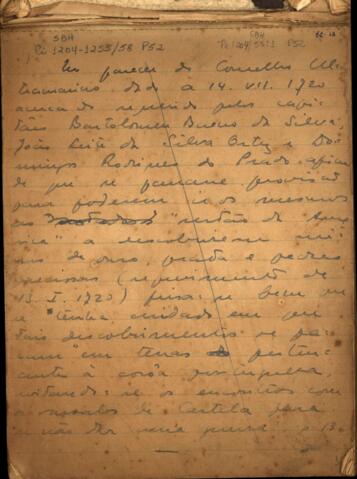 SBH
Pi 1204-1255/58 P52
SBH
Pi 1204 P52
Em parecer do Conselho Ul-
tramarino dado a 14. VII. 1720
acerca do requerido pelos capi-
tães Bartolomeu Bueno da Silva,
João Leite da Silva Ortiz e Do-
mingos Rodrigues do Prado afim
de que se passasse provisão
para poderem ir os mesmos
ao "sertão da Ame-
rica" a descobrirem mi-
nas de ouro, prata e pedras
preciosas (requerimento de
13. I. 1720) fixa-se bem que
se "tenha cuidado em que
tais descobrimentos se fa-
çam" em terras perten-
centes à corôa portuguesa,
evitando-se os encontros com
os vassalos de Castela para
se não dar